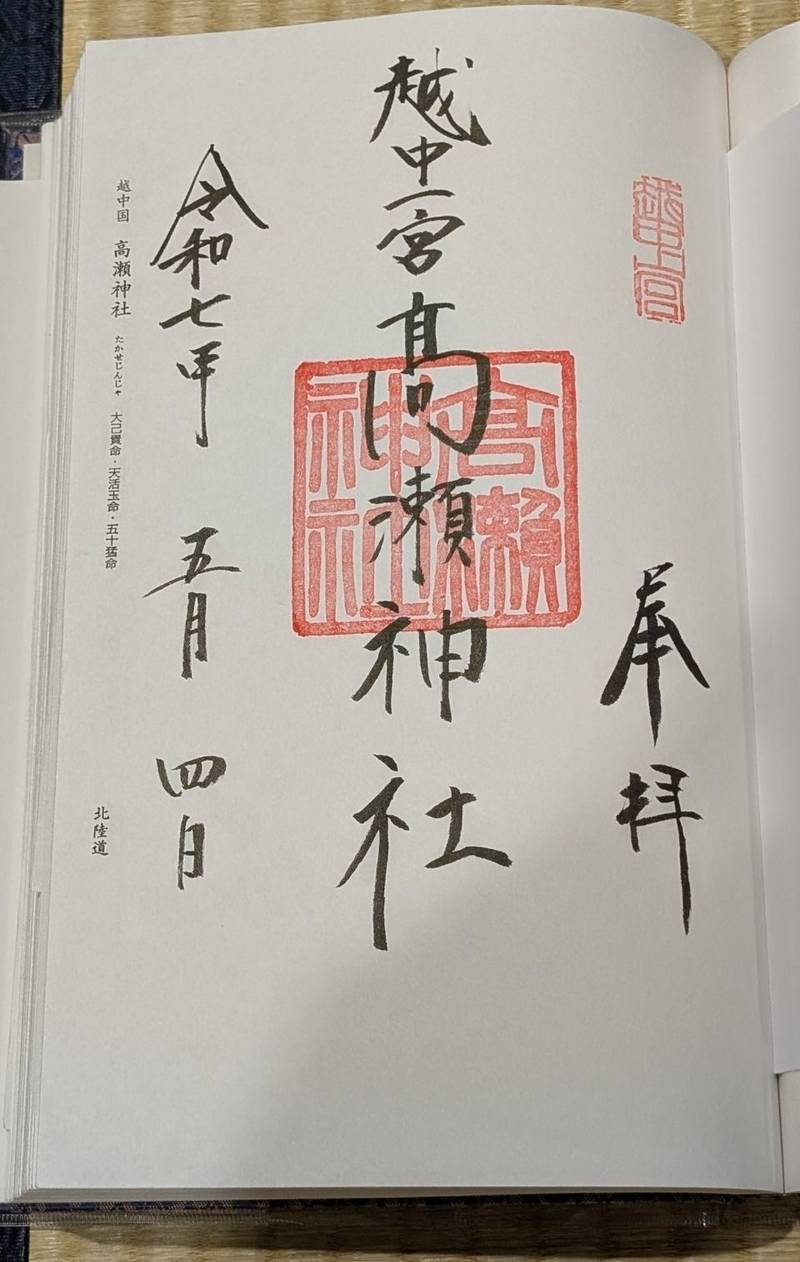 越中一宮
奉拝
越中一宮高瀬神社
高瀬神社
令和七年 五月 四日
越中国 高瀬神社 たかせじんじゃ 大己貴命・天活玉命・五十猛命
北陸道